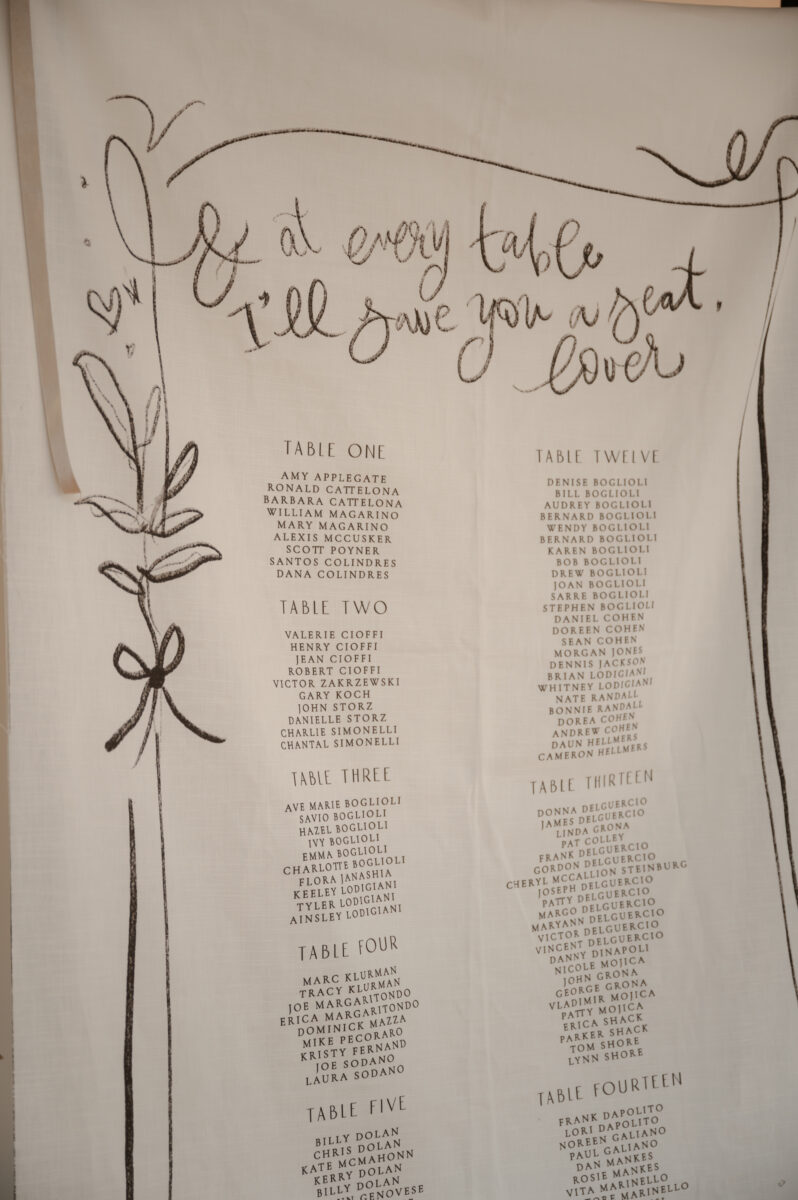 & at every table
I'll save you a seat,
lover
TABLE ONE
AMY APPLEGATE
RONALD CATTELONA
BARBARA CATTELONA
WILLIAM MAGARINO
MARY MAGARINO
ALEXIS MCCUSKER
SCOTT POYNER
SANTOS COLINDRES
DANA COLINDRES
TABLE TWO
VALERIE CIOFFI
HENRY CIOFFI
JEAN CIOFFI
ROBERT CIOFFI
VICTOR ZAKRZEWSKI
GARY KOCH
JOHN STORZ
DANIELLE STORZ
CHARLIE SIMONELLI
CHANTAL SIMONELLI
TABLE THREE
AVE MARIE BOGLIOLI
SAVIO BOGLIOLI
HAZEL BOGLIOLI
IVY BOGLIOLI
EMMA BOGLIOLI
CHARLOTTE BOGLIOLI
FLORA JANASHIA
KEELEY LODIGIANI
TYLER LODIGIANI
AINSLEY LODIGIANI
TABLE FOUR
MARC KLURMAN
TRACY KLURMAN
JOE MARGARITONDO
ERICA MARGARITONDO
DOMINICK MAZZA
MIKE PECORARO
KRISTY FERNAND
JOE SODANO
LAURA SODANO
TABLE FIVE
BILLY DOLAN
CHRIS DOLAN
KATE MCMAHONN
KERRY DOLAN
BILLY DOLAN
GENOVESE
TABLE TWELVE
DENISE BOGLIOLI
BILL BOGLIOLI
AUDREY BOGLIOLI
BERNARD BOGLIOLI
WENDY BOGLIOLI
BERNARD BOGLIOLI
KAREN BOGLIOLI
BOB BOGLIOLI
DREW BOGLIOLI
JOAN BOGLIOLI
SARRE BOGLIOLI
STEPHEN BOGLIOLI
DANIEL COHEN
DOREEN COHEN
SEAN COHEN
MORGAN JONES
DENNIS JACKSON
BRIAN LODIGIANI
WHITNEY LODIGIANI
NATE RANDALL
BONNIE RANDALL
DOREA COHEN
ANDREW COHEN
DAUN HELLMERS
CAMERON HELLMERS
TABLE THIRTEEN
DONNA DELGUERCIO
JAMES DELGUERCIO
LINDA GRONA
PAT COLLEY
FRANK DELGUERCIO
GORDON DELGUERCIO
CHERYL MCCALLION STEINBURG
JOSEPH DELGUERCIO
PATTY DELGUERCIO
MARGO DELGUERCIO
MARYANN DELGUERCIO
VICTOR DELGUERCIO
VINCENT DELGUERCIO
DANNY DINAPOLI
NICOLE MOJICA
JOHN GRONA
GEORGE GRONA
VLADIMIR MOJICA
PATTY MOJICA
ERICA SHACK
PARKER SHACK
TOM SHORE
LYNN SHORE
TABLE FOURTEEN
FRANK DAPOLITO
LORI DAPOLITO
NOREEN GALIANO
PAUL GALIANO
DAN MANKES
ROSIE MANKES
VITA MARINELLO
MARINELLO